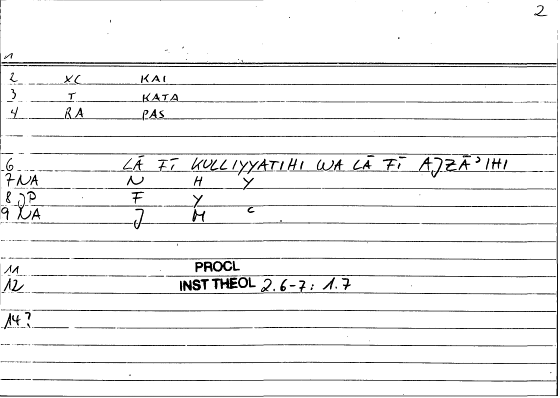 2
1
2 XC KAI
3 T KATA
4 RA PAS
6 LĀ FĪ KULLIYYATIHI WA LĀ FĪ AJZĀʾIHI
7 NA N H Y
8 JP F Y
9 NA J M ʿ
11 PROCL
12 INST THEOL 2.6-7: 1.7
14?